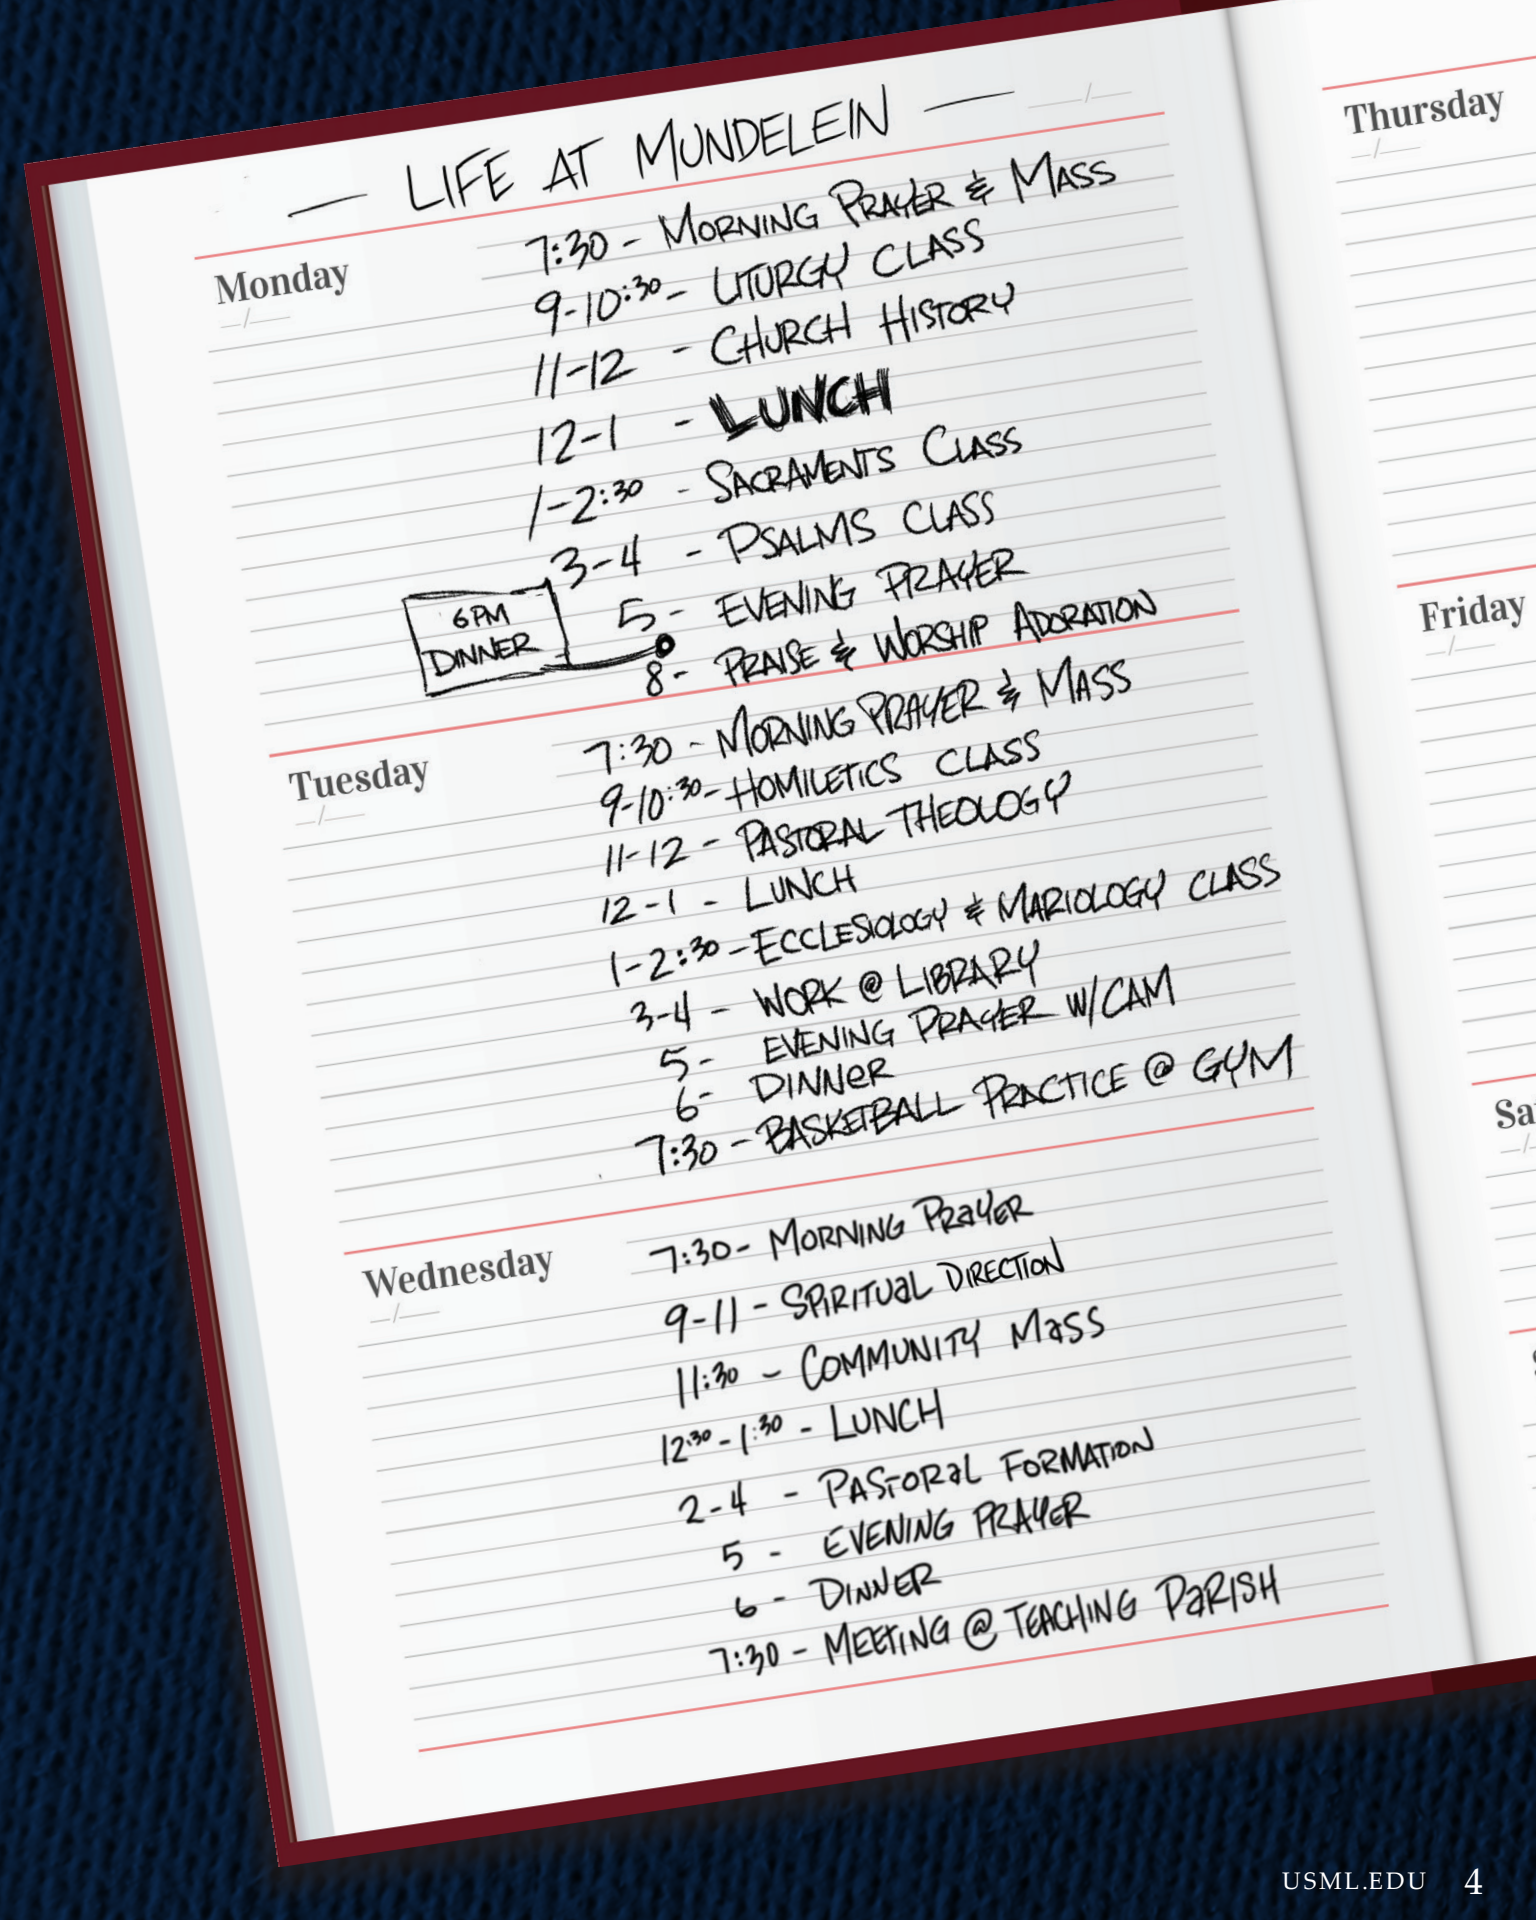 — LIFE AT MUNDELEIN —
Monday
7:30 - MORNING PRAYER & MASS
9-10:30 - LITURGY CLASS
11-12 - CHURCH HISTORY
12-1 - LUNCH
1-2:30 - SACRAMENTS CLASS
3-4 - PSALMS CLASS
5 - EVENING PRAYER
6PM
DINNER
8 - PRAISE & WORSHIP ADORATION
Tuesday
7:30 - MORNING PRAYER & MASS
9-10:30 - HOMILETICS CLASS
11-12 - PASTORAL THEOLOGY
12-1 - LUNCH
1-2:30 - ECCLESIOLOGY & MARIOLOGY CLASS
3-4 - WORK @ LIBRARY
5 - EVENING PRAYER W/CAM
6 - DINNER
7:30 - BASKETBALL PRACTICE @ GYM
Wednesday
7:30 - MORNING PRAYER
9-11 - SPIRITUAL DIRECTION
11:30 - COMMUNITY MASS
12:30-1:30 - LUNCH
2-4 - PASTORAL FORMATION
5 - EVENING PRAYER
6 - DINNER
7:30 - MEETING @ TEACHING PARISH
Thursday
Friday
Sa
USML.EDU 4